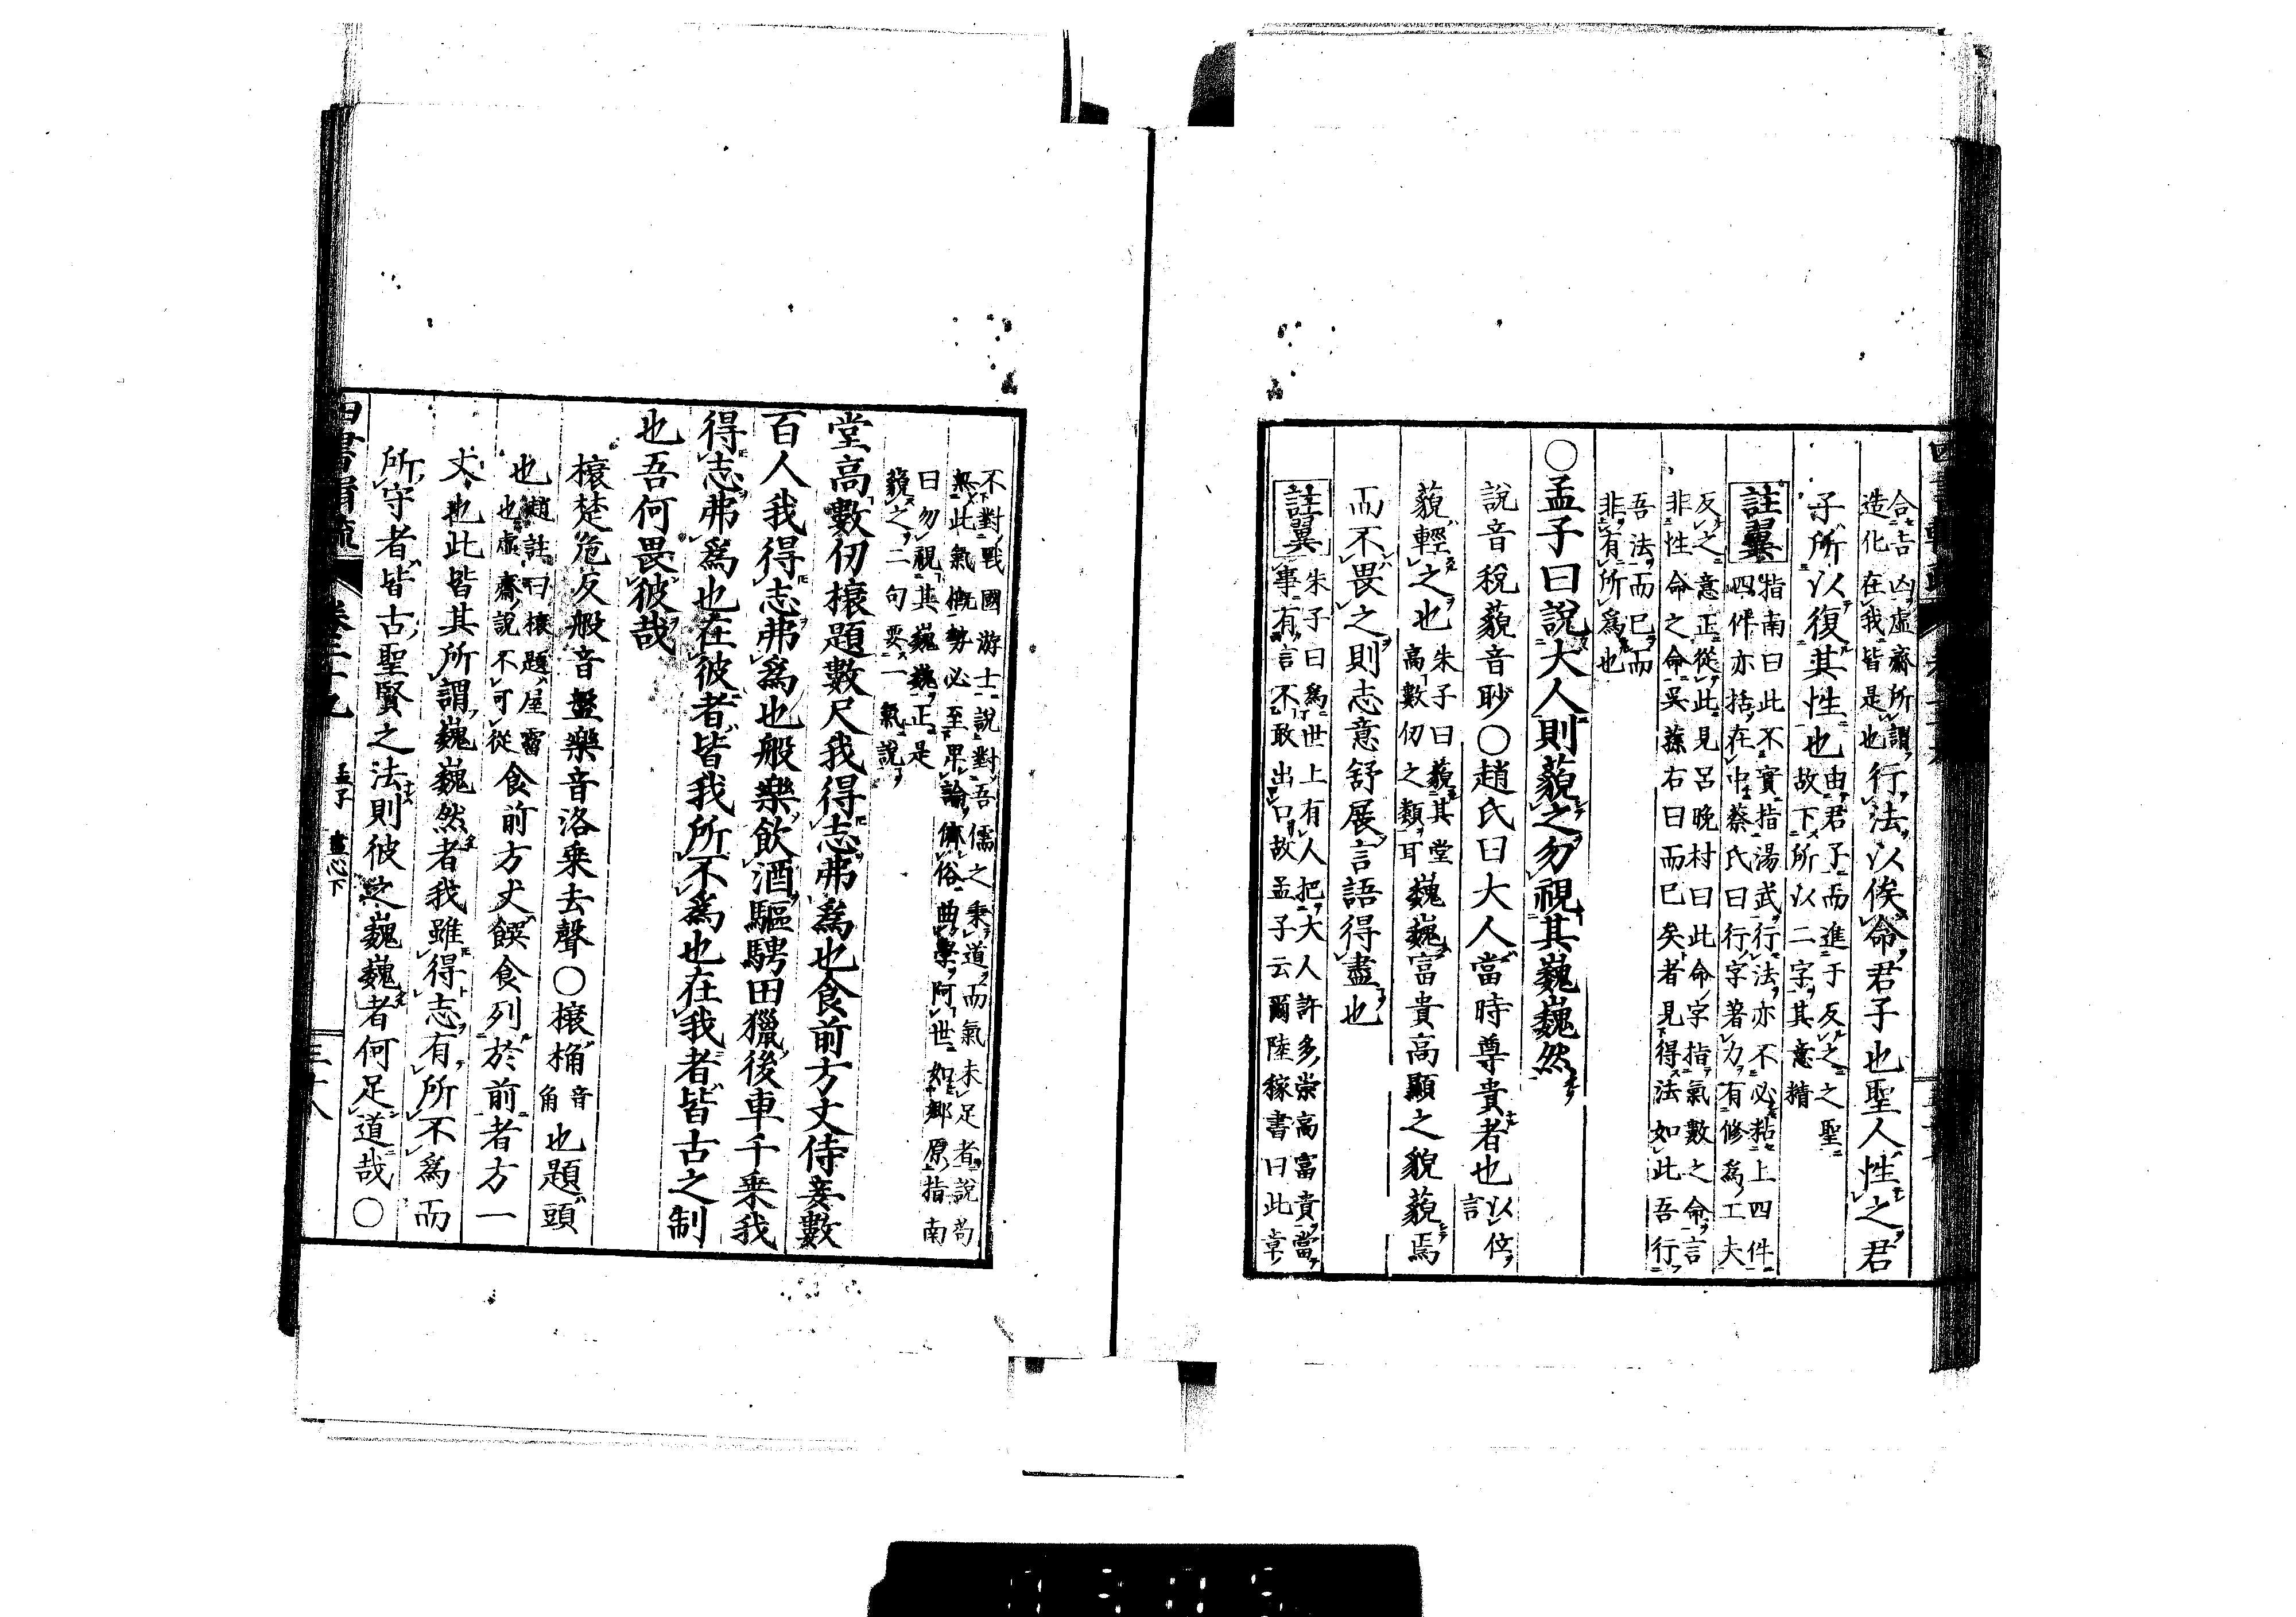 合吉凶虛齋所謂
造化在我皆是也
行法以俟命君子也聖人性之君
子所以復其性也
由君子而進于反之之聖
故下所以二字其意精
註翼
指南曰此不實指湯武行法亦不必粘上四件
四件亦括在中蔡氏曰行字著力有修爲工夫
反之意正從此見呂晚村曰此命字指氣數之命言
非性命之命吳蓀右曰而已矣者見得法如此吾行
吾法而已而
非有所爲也
○孟子曰說大人則藐之勿視其巍巍然
說音稅藐音眇○趙氏曰大人當時尊貴者也
藐輕之也
朱子曰藐其堂
高數仞之類耳
巍巍富貴高顯之貌藐焉
而不畏之則志意舒展言語得盡也
註翼
朱子曰爲世上有人把大人許多崇高富貴當
事有言不敢出口故孟子云爾陸稼書曰此章
不對戰國游士說對吾儒之秉道而氣未足者說苟
無此氣概勢必至卑論儕俗曲學阿世如鄉原指南
曰勿視其巍巍正是
藐之二句要一氣說
堂高數仞榱題數尺我得志弗爲也食前方丈侍妾數
百人我得志弗爲也般樂飲酒驅騁田獵後車千乘我
得志弗爲也在彼者皆我所不爲也在我者皆古之制
也吾何畏彼哉
榱楚危反般音盤樂音洛乘去聲○榱桷
音
角
也題頭
也
趙註曰榱題屋霤
也虛齋說不可從
食前方丈饌食列於前者方一
丈也此皆其所謂巍巍然者我雖得志有所不爲而
所守者皆古聖賢之法則彼之巍巍者何足道哉○
孟子 盡心下